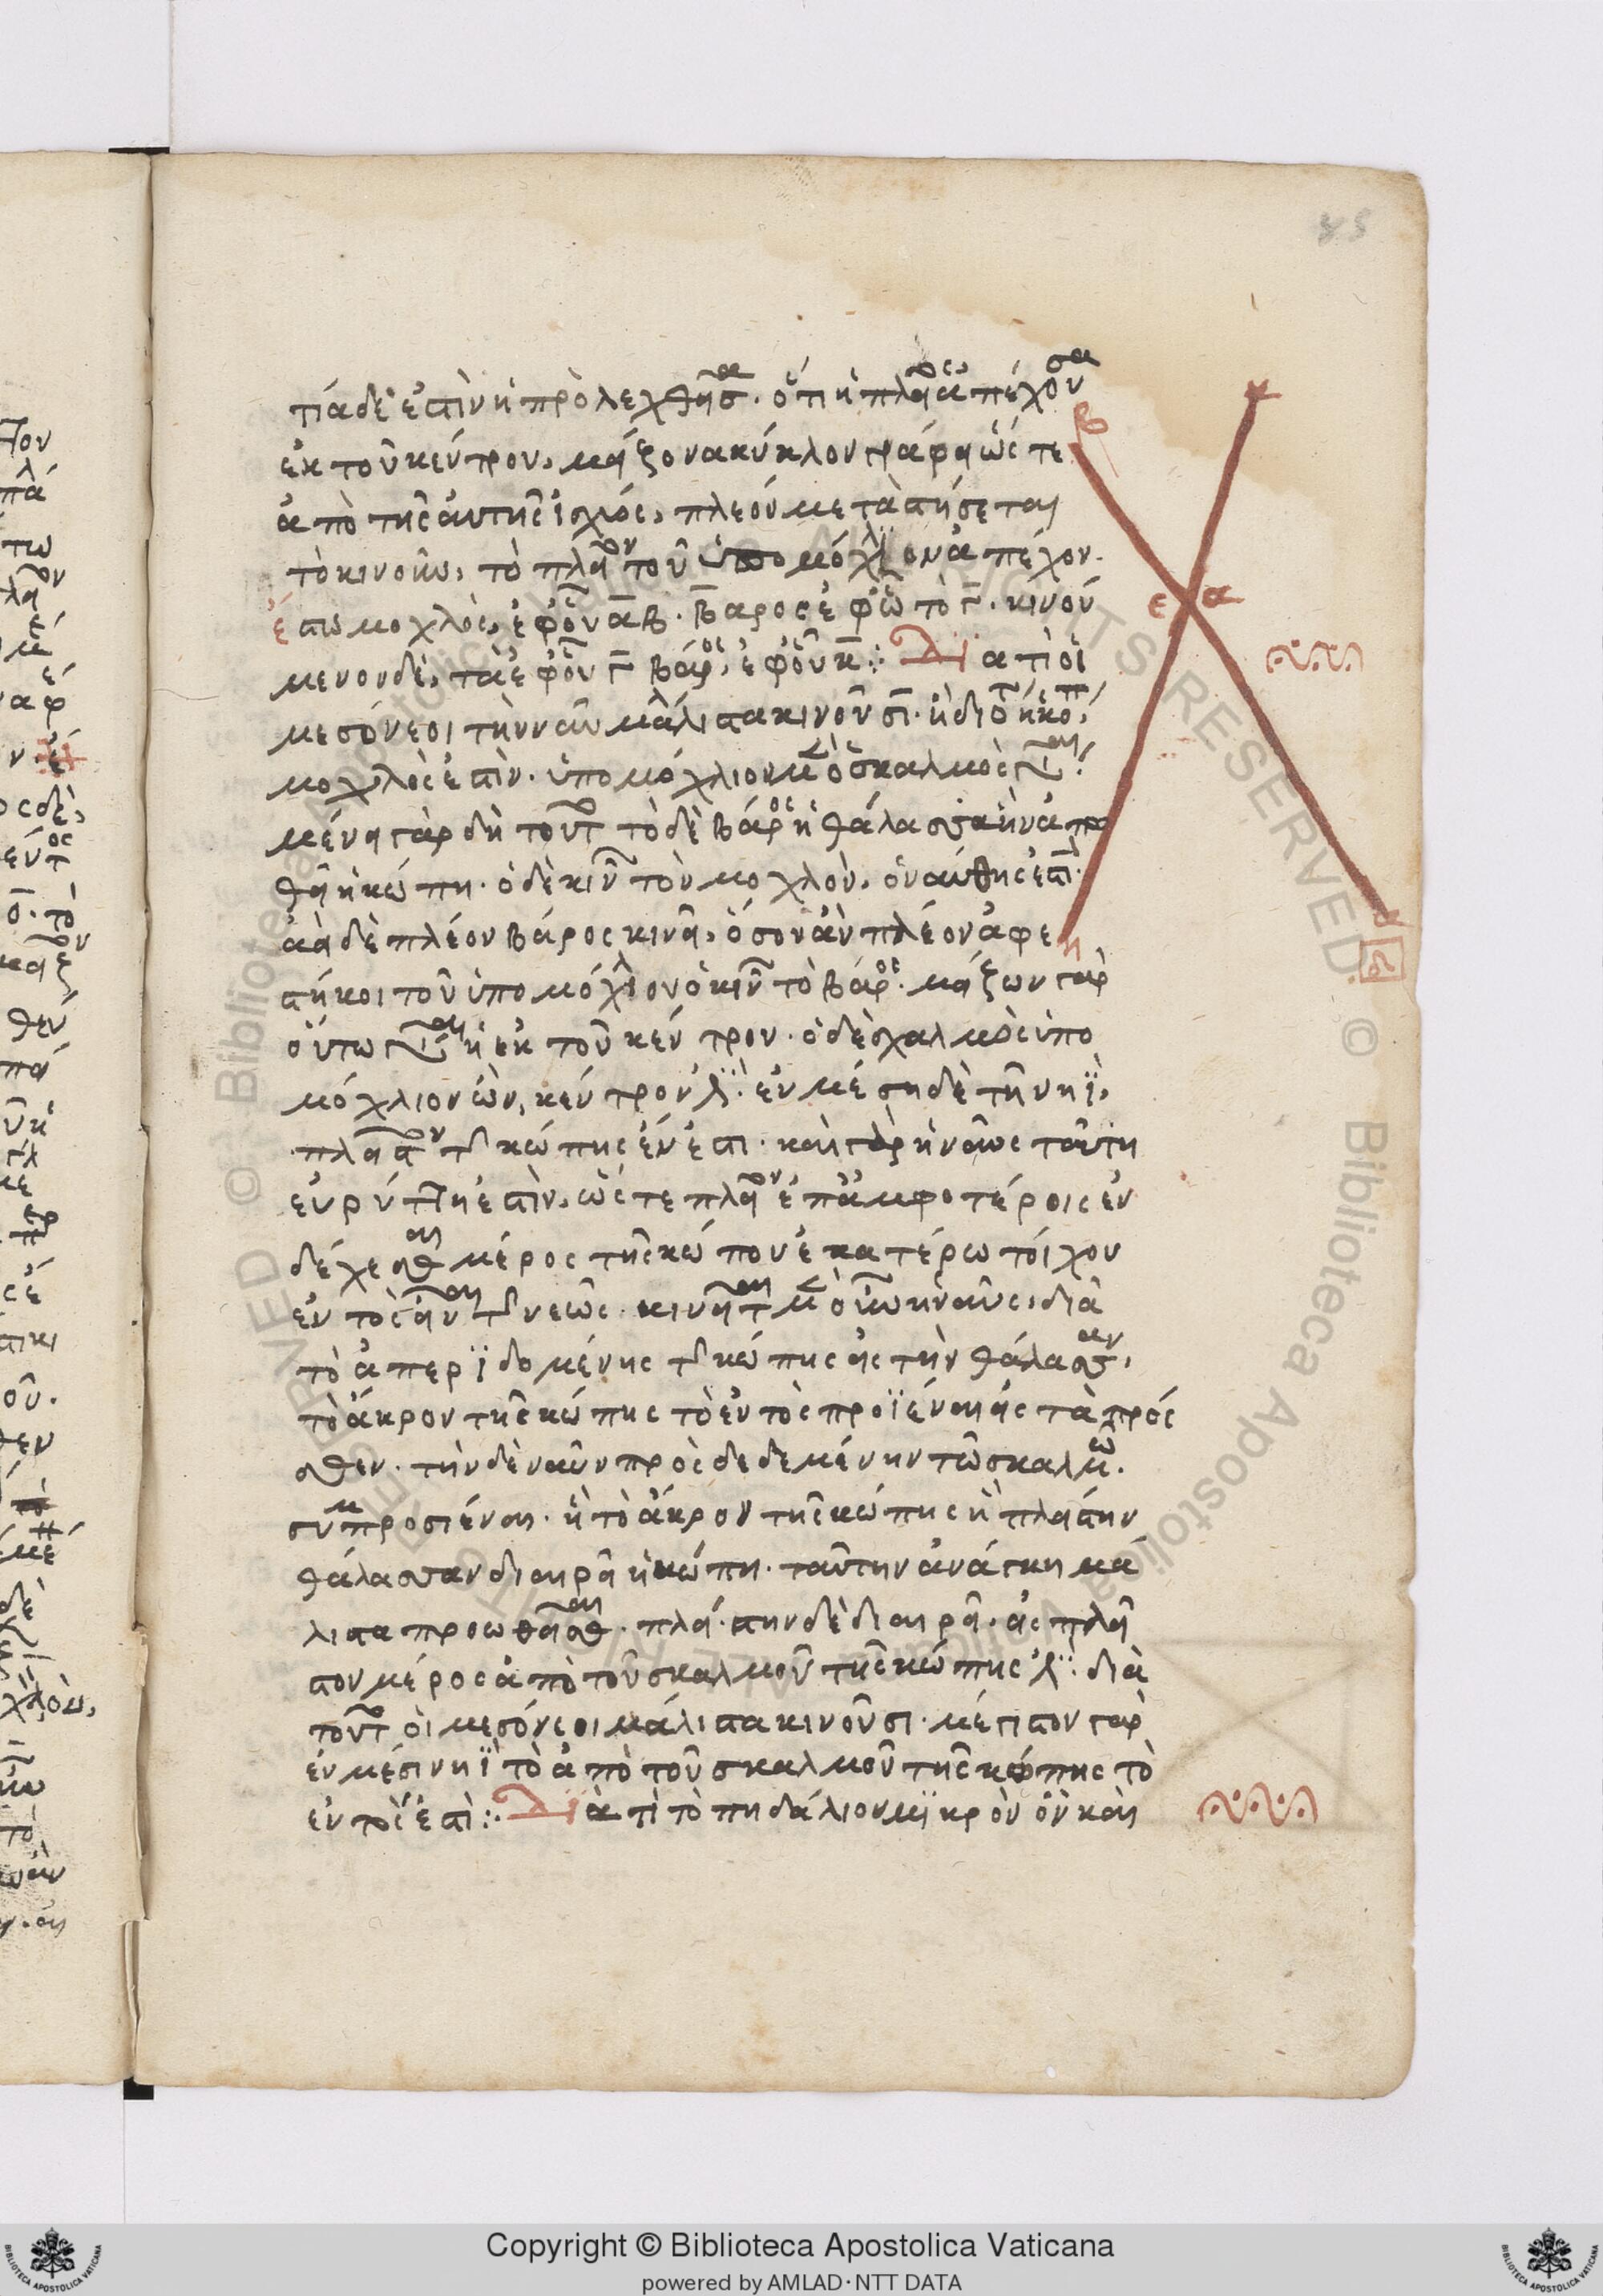 τία δέ ἐστιν ἡ προλεχθεῖσα· ὅτι ἡ πλεῖον ἀπέχουσα
ἐκ τοῦ κέντρου, μείζονα κύκλον γράφει ὥστε
ἀπὸ τῆς αὐτῆς ἰσχύος, πλέον μεταστήσεται
τὸ κινοῦν, τὸ πλεῖον τοῦ ὑπομοχλίου ἀπέχον.
ἔστω μοχλὸς, ἐφ' οὗ ΑΒ. Βάρος ἐφ' ὧ τὸ Γ. κινού
μενον δὲ, τὰ ἐφ' οὗ Γ βάρος, ἐφ' οὗ Κ: Διατί οἱ
μεσόνεοι τὴν ναῦν μάλιστα κινοῦσι. ἢ διότι ἡ κώπη
μοχλός ἐστιν. ὑπομόχλιον μὲν ὁ σκαλμὸς γίνεται.
μένει γὰρ δὴ τοῦτο τὸ δὲ βάρος ἡ θάλασσα ἣν ἀπο
θεῖ ἡ κώπη. ὁ δὲ κινῶν τὸν μοχλὸν, ὁ ναύτης ἐστί.
ἀεὶ δὲ πλέον βάρος κινεῖ, ὅσον ἂν πλέον ἀφε
στήκοι τοῦ ὑπομοχλίου ὁ κινῶν τὸ βάρος. μείζων γὰρ
οὕτω γίνεται ἡ ἐκ τοῦ κέντρου. ὁ δὲ σχαλμὸς ὑπο
μόχλιον ὢν, κέντρον ἐστί. ἐν μέσῃ δὲ τῇ νηῒ,
πλεῖστον τῆς κώπης ἐν ἐστι. καὶ γὰρ ἡ ναῦς ταύτῃ
εὐρυτάτη ἐστὶν, ὥστε πλεῖον ἐπ' ἀμφοτέροις ἐν
δέχεσθαι μέρος τῆς κώπου ἑκατέρω τοίχου
ἐντὸς εἶναι τῆς νεῶς. κινεῖται μὲν οὖν ἡ ναῦς, διὰ
τὸ ἀπερϊδομένης τῆς κώπης εἰς τὴν θάλασσαν,
τὸ ἄκρον τῆς κώπης τὸ ἐντὸς προϊέναι εἰς τὰ πρός
σθεν. τὴν δὲ ναῦν προσδεδεμένην τῶ σκαλμῶ.
συμπροσιέναι. ᾗ τὸ ἄκρον τῆς κώπης ἡ πλείστην
θάλασσαν διαιρεῖ ἡ κώπη. ταύτην ἀνάγκη μά
λιστα προωθεῖσθαι. πλεί στην δὲ διαιρεῖ. εἰς πλεῖ
στον μέρος ἀπὸ τοῦ σκαλμοῦ τῆς κώπης ἐστί. διὰ
τοῦτο οἱ μεσόνεοι μάλιστα κινοῦσι. μέγιστον γὰρ
ἐν μέσι νηῒ τὸ ἀπὸ τοῦ σκαλμοῦ τῆς κώπης τὸ
ἐντός ἐστι: Διὰ τί τὸ πηδάλιον μϊκρὸν ὂν καὶ
Copyright © Biblioteca Apostolica Vaticana
powered by AMLAD·NTT DATA